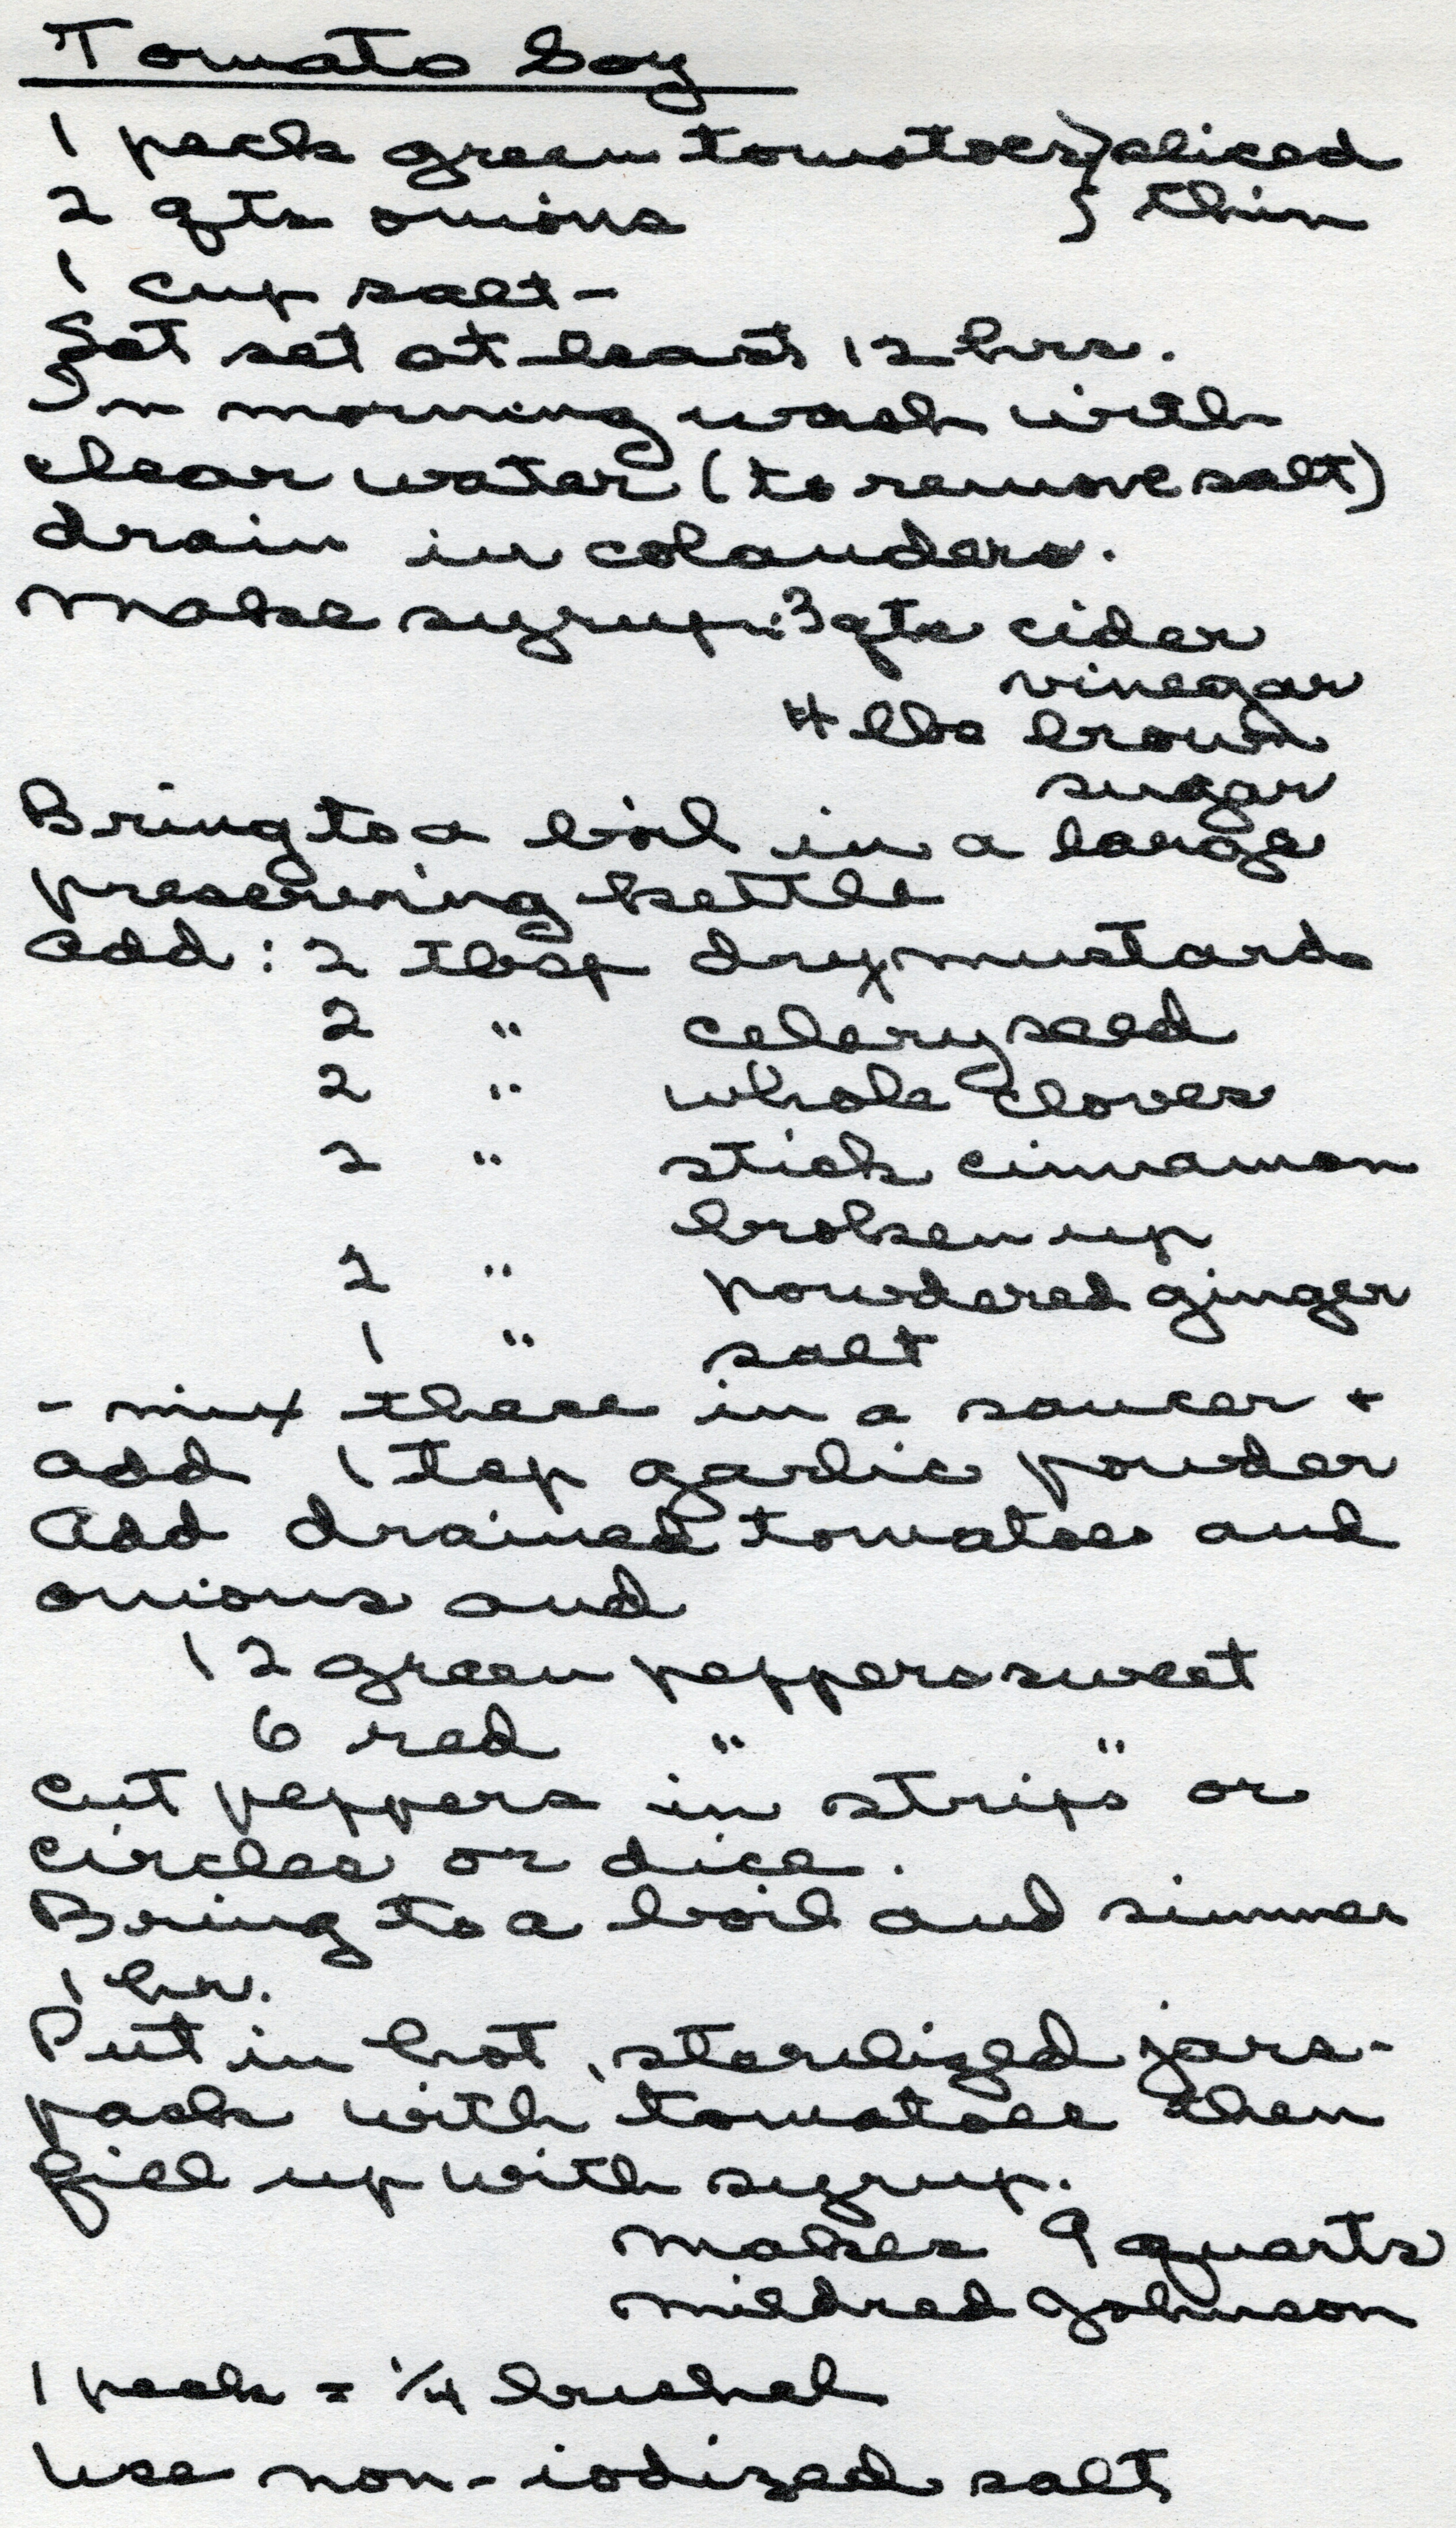 Tomato Soy
1 peck green tomatoes } sliced
2 qts onions } thin
1 cup salt -
Let set at least 12 hrs.
In morning wash with
clear water (to remove salt)
drain in colanders.
Make syrup: 3 qts cider
vinegar
4 lbs brown
sugar
Bring to a boil in a large
preserving kettle
Add: 2 tbsp dry mustard
2 " celery seed
2 " whole cloves
2 " stick cinnamon
broken up
2 " powdered ginger
1 " salt
- mix these in a saucer +
add 1 tsp garlic powder
Add drained tomatoes and
onions and
12 green peppers sweet
6 red " "
cut peppers in strips or
circles or dice.
Bring to a boil and simmer
1 hr.
Put in hot, sterilized jars -
pack with tomatoes then
fill up with syrup.
Makes 9 quarts
Mildred Johnson
1 peck = 1/4 bushel
Use non-iodized salt